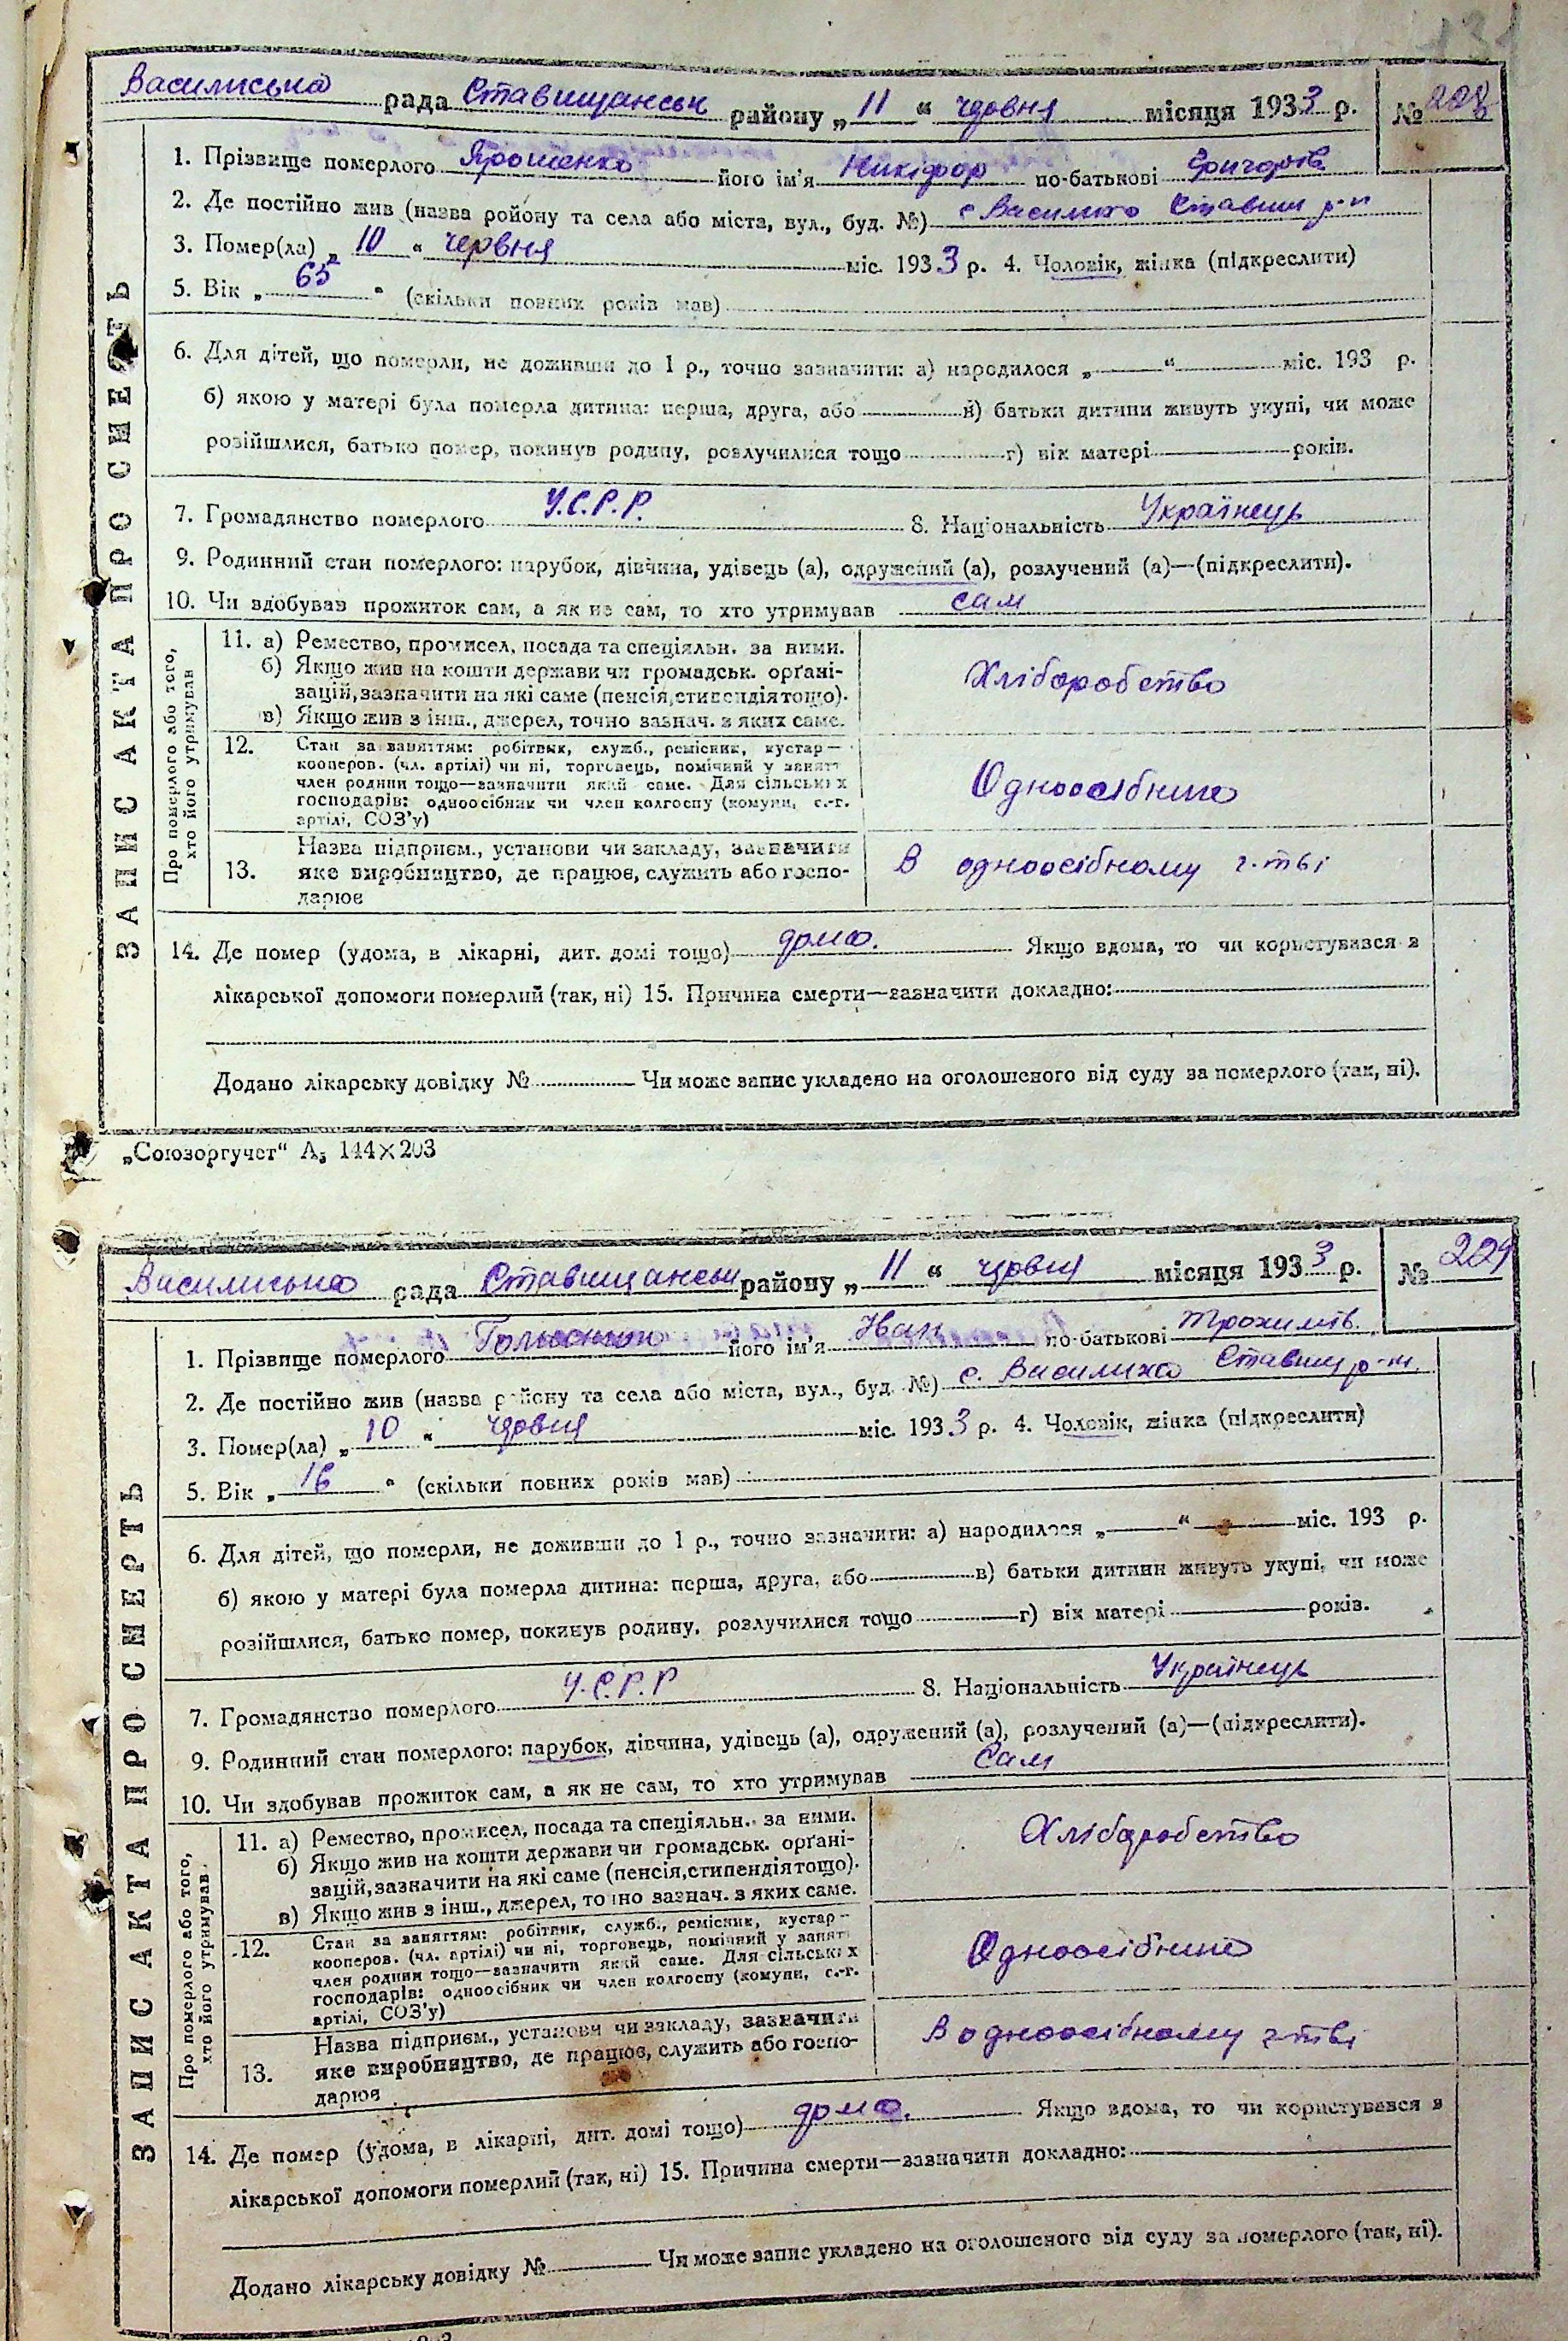 131
Василиська рада Ставищанськ району „11“ червня місяця 1933 р. № 228
ЗАПИС АКТА ПРО СМЕРТЬ
1. Прізвище померлого Ярошенко його ім'я Никифор по-батькові Григорів
2. Де постійно жив (назва ройону та села або міста, вул., буд. №) с Василиха Ставищ р-н
3. Помер(ла) „10“ червня міс. 1933 р. 4. Чоловік, жінка (підкреслити)
5. Вік „65“ (скільки повних років мав)
6. Для дітей, що померли, не доживши до 1 р., точно зазначити: а) народилося „ “ міс. 193 р.
б) якою у матері була померла дитина: перша, друга, або в) батьки дитини живуть укупі, чи може
розійшлися, батько помер, покинув родину, розлучилися тощо г) вік матері років.
7. Громадянство померлого У.С.Р.Р. 8. Національність Українець
9. Родинний стан померлого: парубок, дівчина, удівець (а), одружений (а), розлучений (а)—(підкреслити).
10. Чи здобував прожиток сам, а як не сам, то хто утримував сам
Про померлого або того, хто його утримував
11. а) Ремество, промисел, посада та спеціяльн. за ними.
б) Якщо жив на кошти держави чи громадськ. орґані-
зацій, зазначити на які саме (пенсія, стипендія тощо).
в) Якщо жив з інш., джерел, точно зазнач. з яких саме.
Хліборобство
12. Стан за заняттям: робітник, служб., ремісник, кустар—
кооперов. (чл. артілі) чи ні, торговець, помічний у занятт
член родини тощо—зазначити який саме. Для сільських
господарів: одноосібник чи член колгоспу (комуни, с.-г.
артілі, СОЗ'у)
Одноосібник
13. Назва підприєм., установи чи закладу, зазначити
яке виробництво, де працює, служить або госпо-
дарює
В одноосібному г-тві
14. Де помер (удома, в лікарні, дит. домі тощо) дома. Якщо вдома, то чи користувався з
лікарської допомоги померлий (так, ні) 15. Причина смерти—зазначити докладно:
Додано лікарську довідку № Чи може запис укладено на оголошеного від суду за померлого (так, ні).
„Союзоргучет“ А5 144×203
Василиська рада Ставищанськ району „11“ червня місяця 1933 р. № 229
ЗАПИС АКТА ПРО СМЕРТЬ
1. Прізвище померлого його ім'я Іван по-батькові Трохимів.
2. Де постійно жив (назва району та села або міста, вул., буд. №) с. Василиха Ставищ р-н.
3. Помер(ла) „10“ червня міс. 1933 р. 4. Чоловік, жінка (підкреслити)
5. Вік „16“ (скільки повних років мав)
6. Для дітей, що померли, не доживши до 1 р., точно зазначити: а) народилося „ “ міс. 193 р.
б) якою у матері була померла дитина: перша, друга, або в) батьки дитини живуть укупі, чи може
розійшлися, батько помер, покинув родину, розлучилися тощо г) вік матері років.
7. Громадянство померлого У.С.Р.Р 8. Національність Українець
9. Родинний стан померлого: парубок, дівчина, удівець (а), одружений (а), розлучений (а)—(підкреслити).
10. Чи здобував прожиток сам, а як не сам, то хто утримував Сам
Про померлого або того, хто його утримував
11. а) Ремество, промисел, посада та спеціяльн. за ними.
б) Якщо жив на кошти держави чи громадськ. орґані-
зацій, зазначити на які саме (пенсія, стипендія тощо).
в) Якщо жив з інш., джерел, точно зазнач. з яких саме.
Хліборобство
12. Стан за заняттям: робітник, служб., ремісник, кустар—
кооперов. (чл. артілі) чи ні, торговець, помічний у занятт
член родини тощо—зазначити який саме. Для сільських
господарів: одноосібник чи член колгоспу (комуни, с.-г.
артілі, СОЗ'у)
Одноосібник
13. Назва підприєм., установи чи закладу, зазначити
яке виробництво, де працює, служить або госпо-
дарює
В одноосібному г-тві
14. Де помер (удома, в лікарні, дит. домі тощо) дома. Якщо вдома, то чи користувався з
лікарської допомоги померлий (так, ні) 15. Причина смерти—зазначити докладно:
Додано лікарську довідку № Чи може запис укладено на оголошеного від суду за померлого (так, ні).